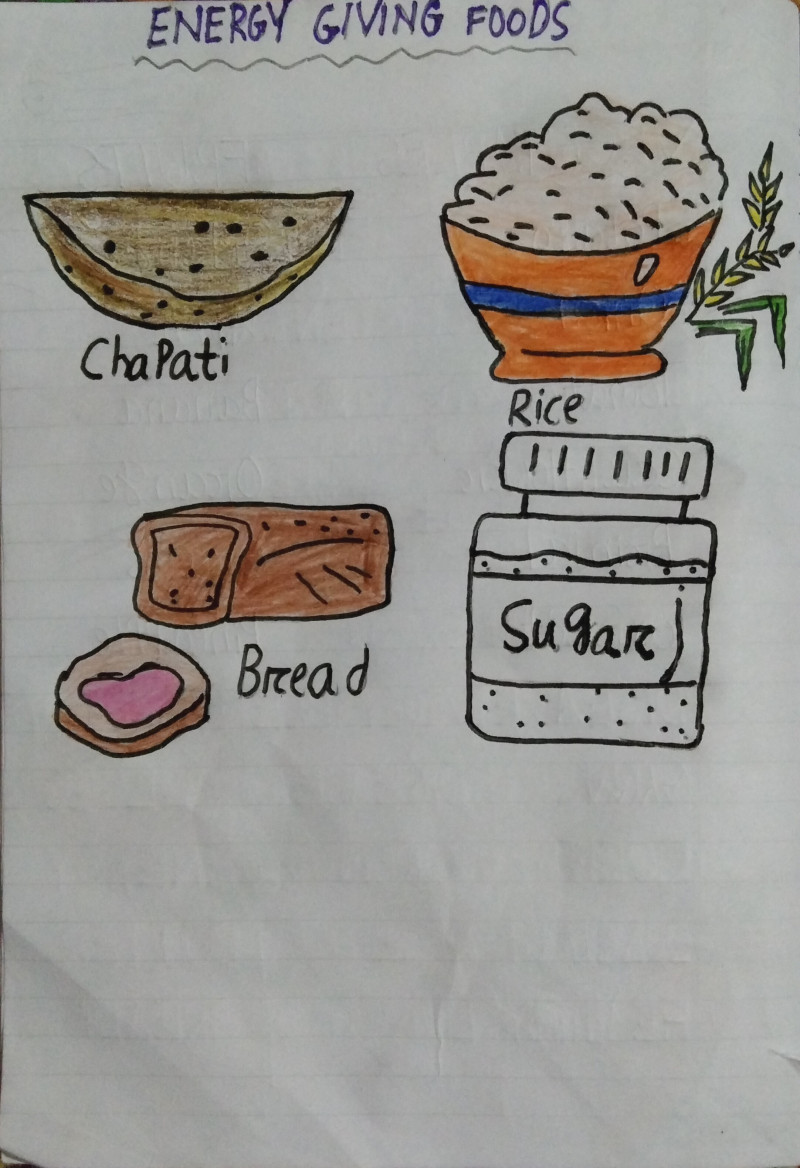 ENERGY GIVING FOODS
ChaPati
Rice
Bread
Sugar